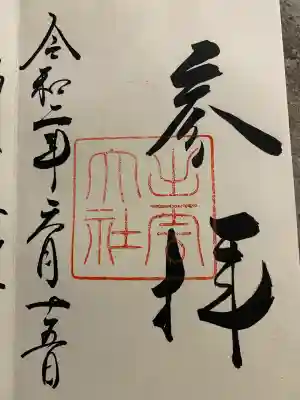 参拝
出雲
大社
令和二年二月十五日